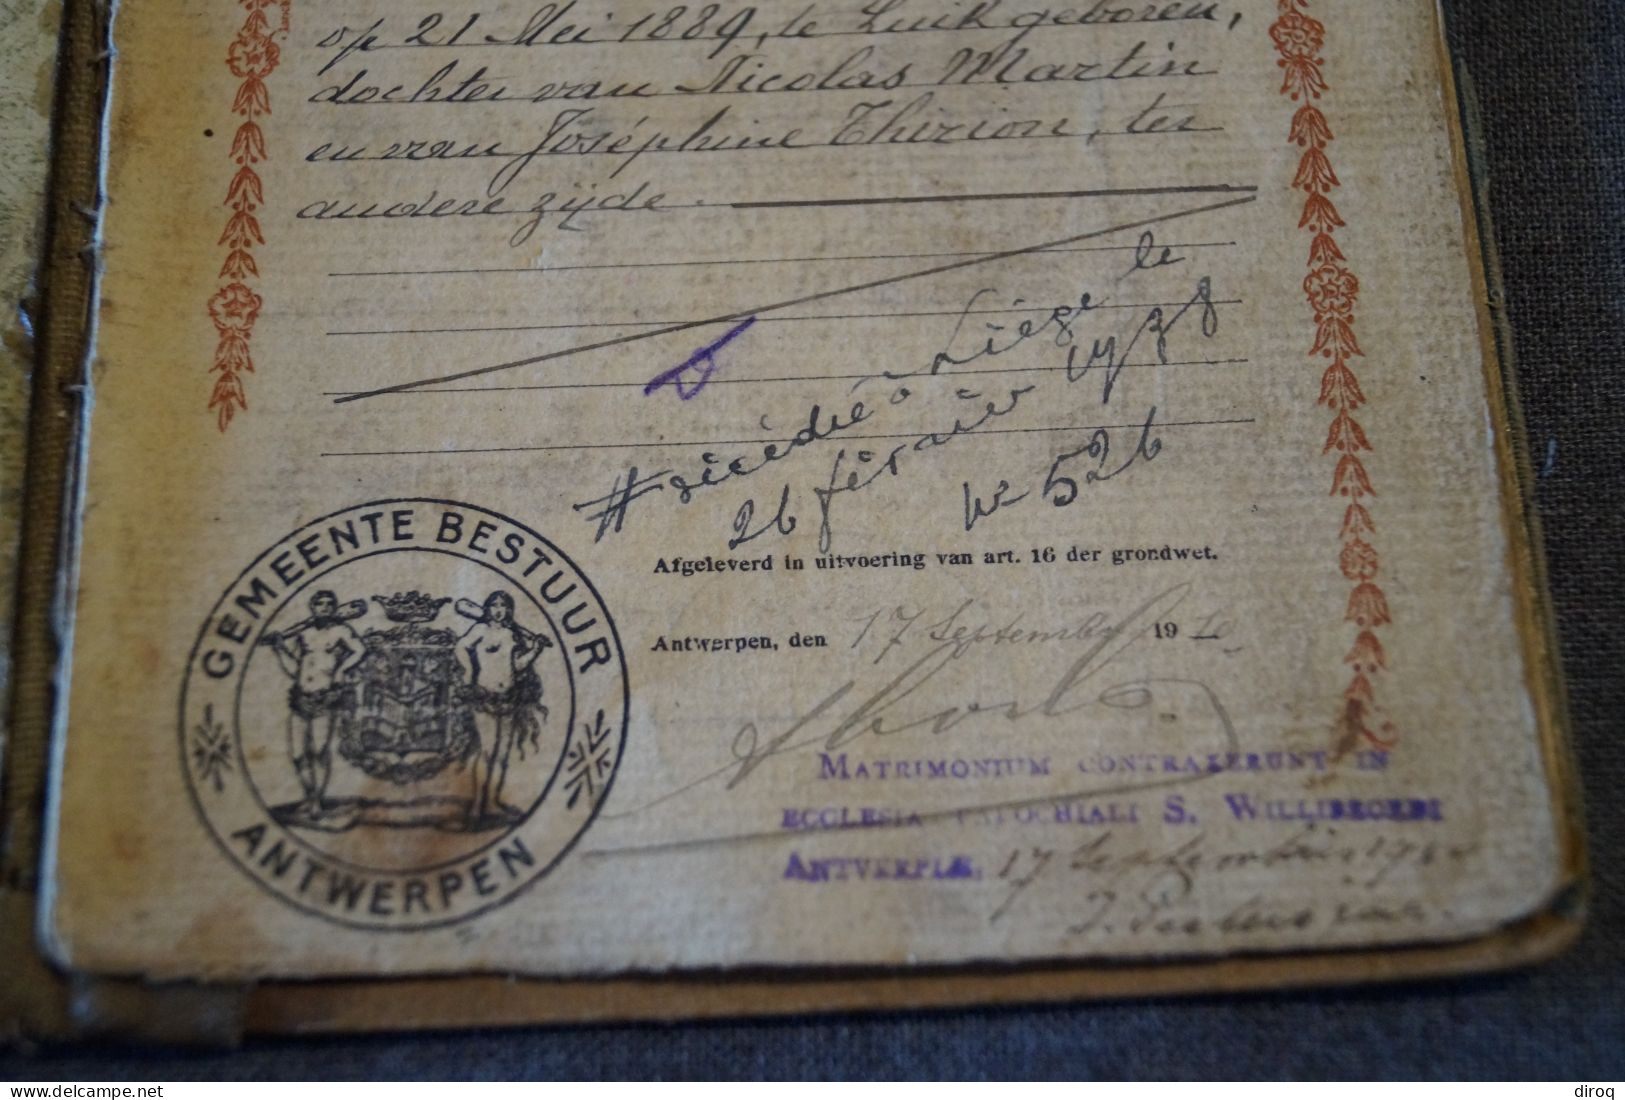 op 21 Mei 1889, te Luik geboren,
dochter van Nicolas Martin
en van Joséphine Thirion, ter
andere zijde.
# décédé à Liège le
26 février
No 526
Afgeleverd in uitvoering van art. 16 der grondwet.
Antwerpen, den 17 September 1910
GEMEENTE BESTUUR
ANTWERPEN
MATRIMONIUM CONTRAXERUNT IN
ECCLESIA PAROCHIALI S. WILLIBRORDI
ANTVERPIÆ, 17 Septembris
diroq